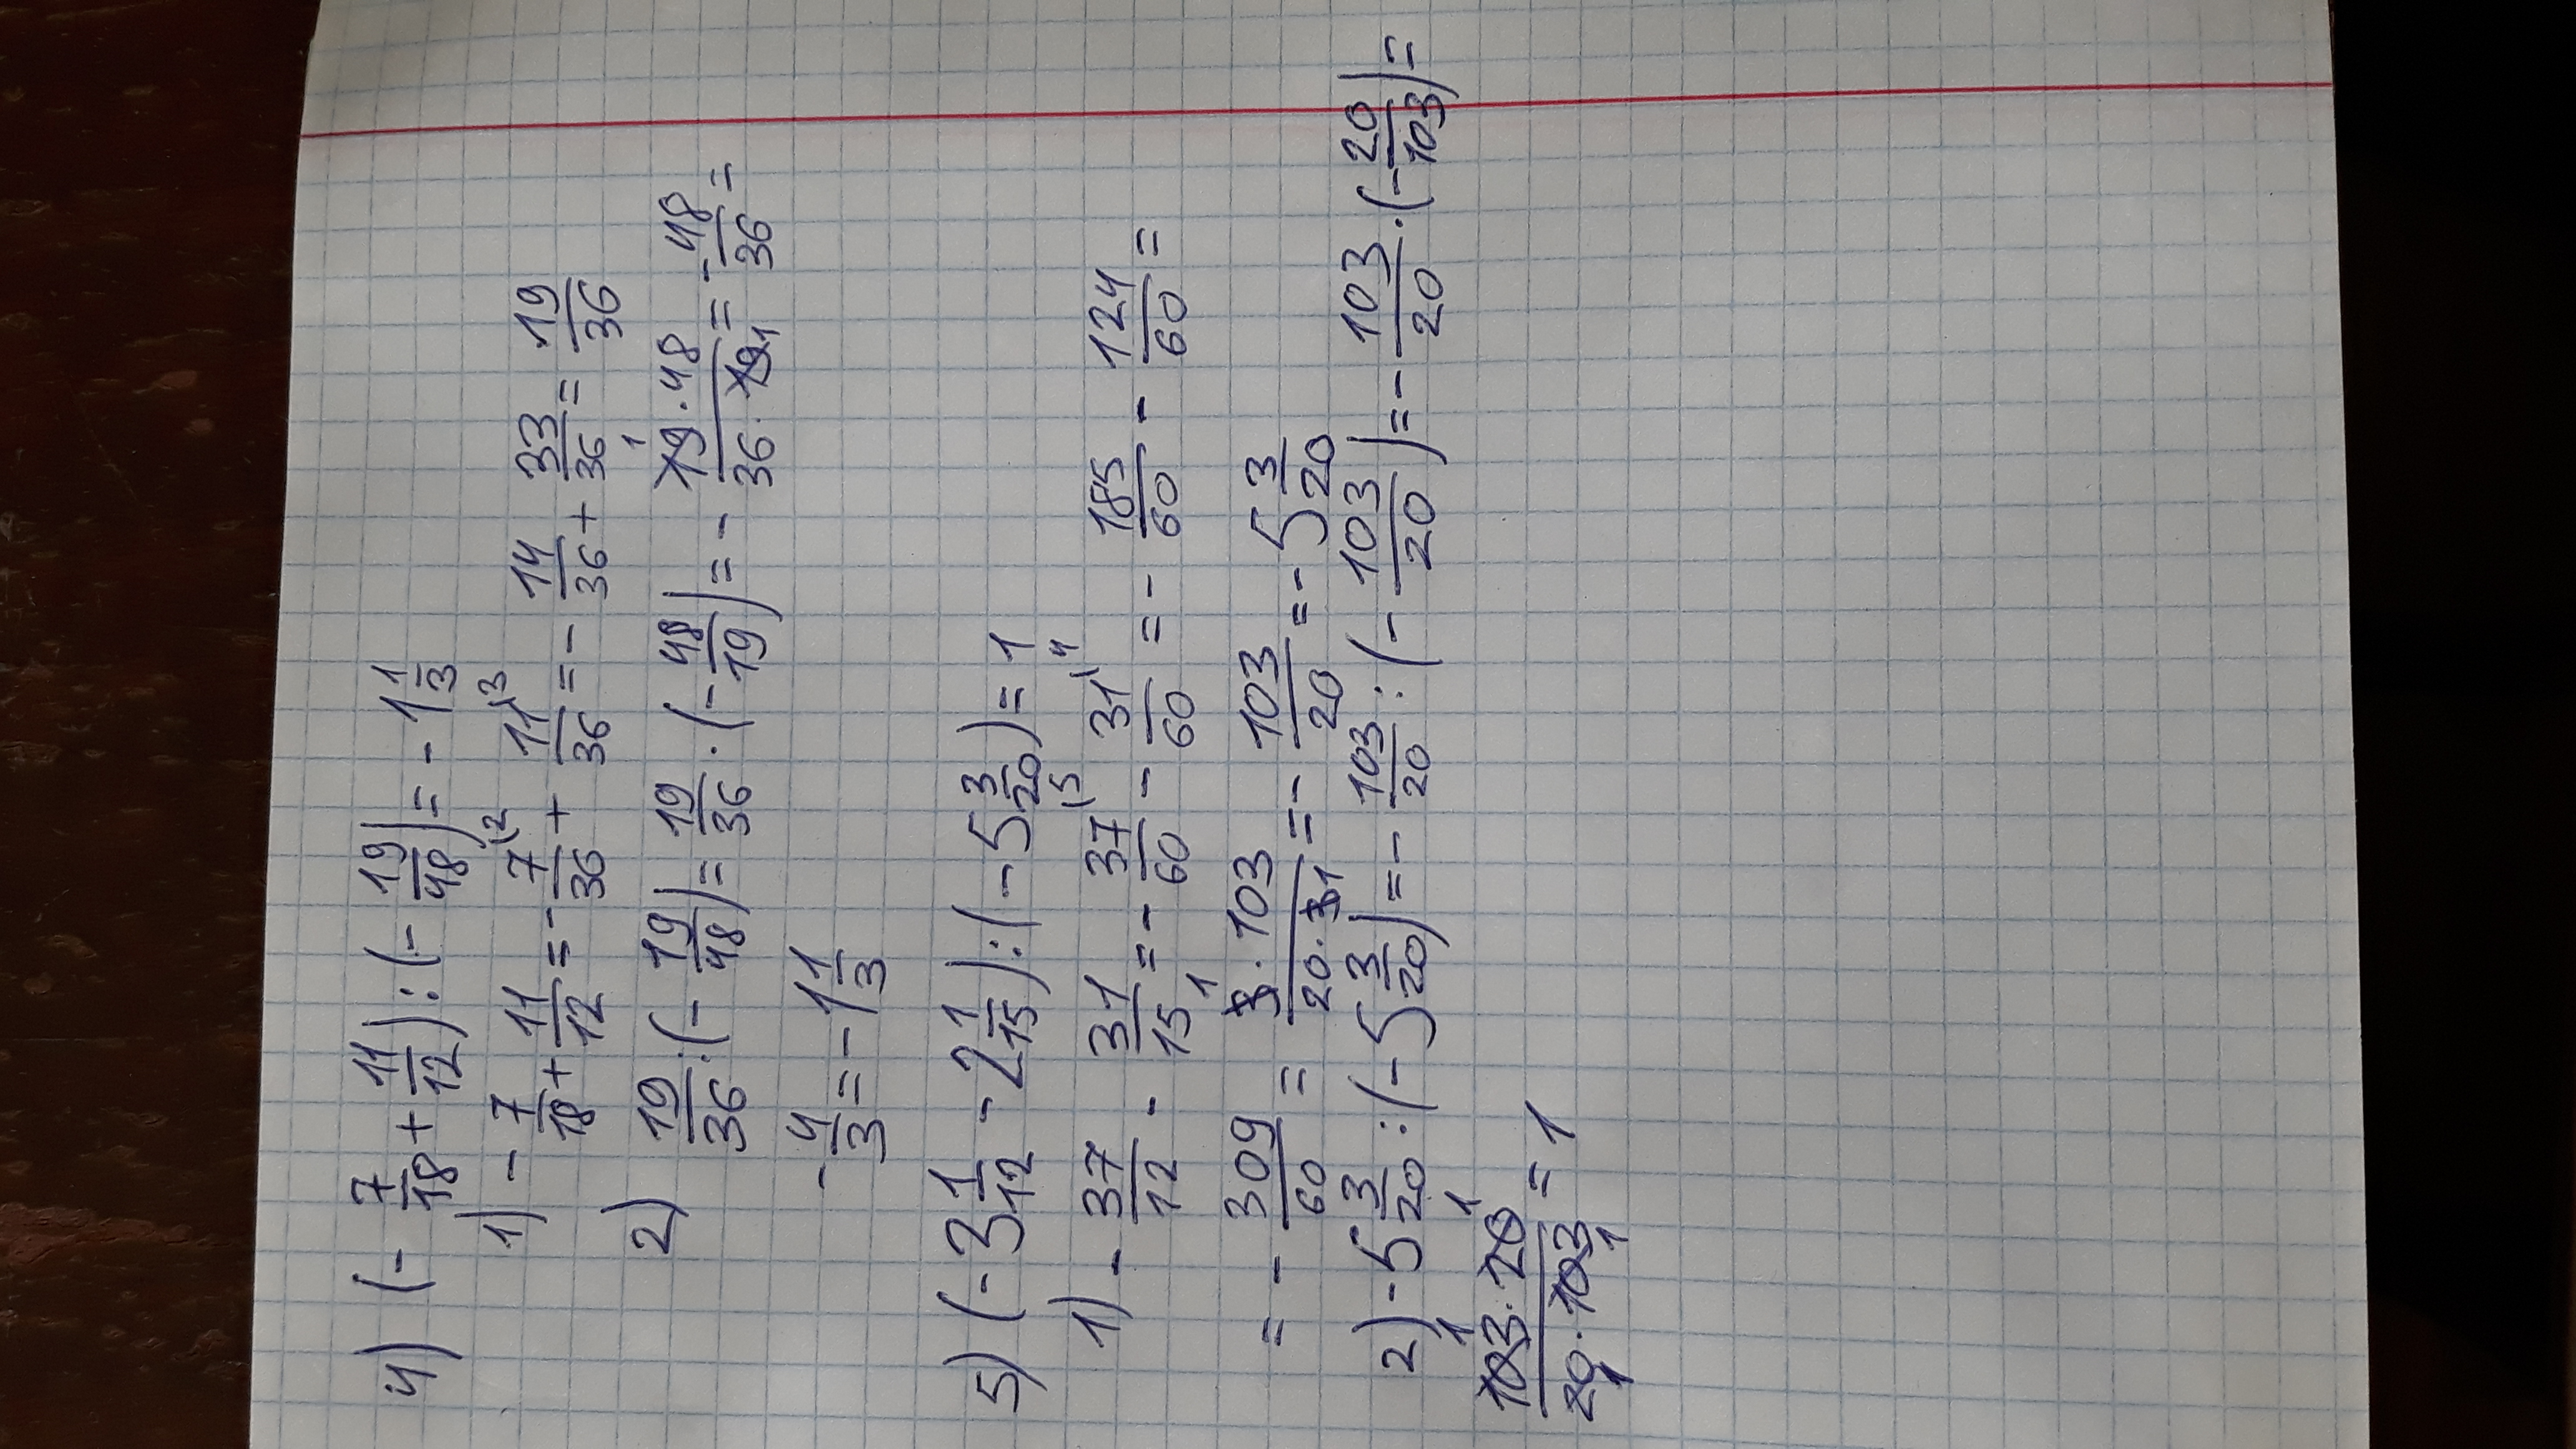 4) (- 7/18 + 11/12) : (- 19/48) = - 1 1/3
1) - 7/18 + 11/12 = - 7\2/36 + 11\3/36 = - 14/36 + 33/36 = 19/36
2) 19/36 : (- 19/48) = 19/36 · (- 48/19) = - 19 1 · 48/36 · 19 1 = - 48/36 =
- 4/3 = - 1 1/3
5) (- 3 1/12 - 2 1/15) : (- 5 3/20) = 1
1) - 37/12 - 31/15 = - 37\5/60 - 31\4/60 = - 185/60 - 124/60 =
= - 309/60 = 3 1 · 103/20 · 3 1 = - 103/20 = - 5 3/20
2) - 5 3/20 : (- 5 3/20) = - 103/20 : (- 103/20) = - 103/20 · (- 20/103) =
103 1 · 20 1/20 1 · 103 1 = 1